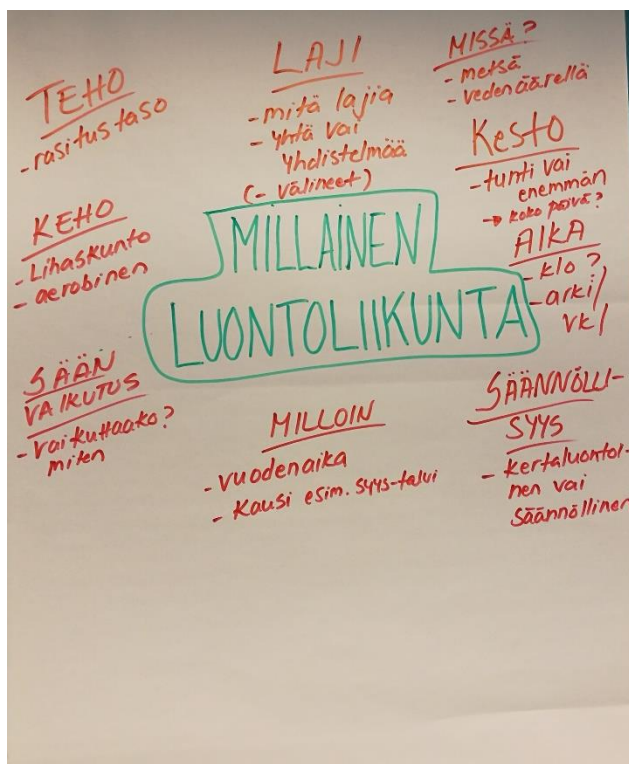 TEHO
- rasitustaso
LAJI
- mitä lajia
- yhtä vai
yhdistelmää
(- välineet)
MISSÄ?
- metsä
- veden äärellä
KESTO
- tunti vai
enemmän
→ koko päivä?
KEHO
- Lihaskunto
- aerobinen
MILLAINEN
LUONTOLIIKUNTA
AIKA
- klo?
- arki/
vkl
SÄÄN
VAIKUTUS
- vaikuttaako?
miten
MILLOIN
- vuodenaika
- Kausi esim. syys-talvi
SÄÄNNÖLLI-
SYYS
- kertaluontoi-
nen vai
säännöllinen